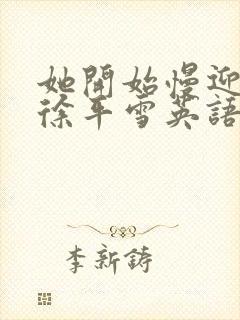 她開始慢迎
徐平雪英語
李新鑄